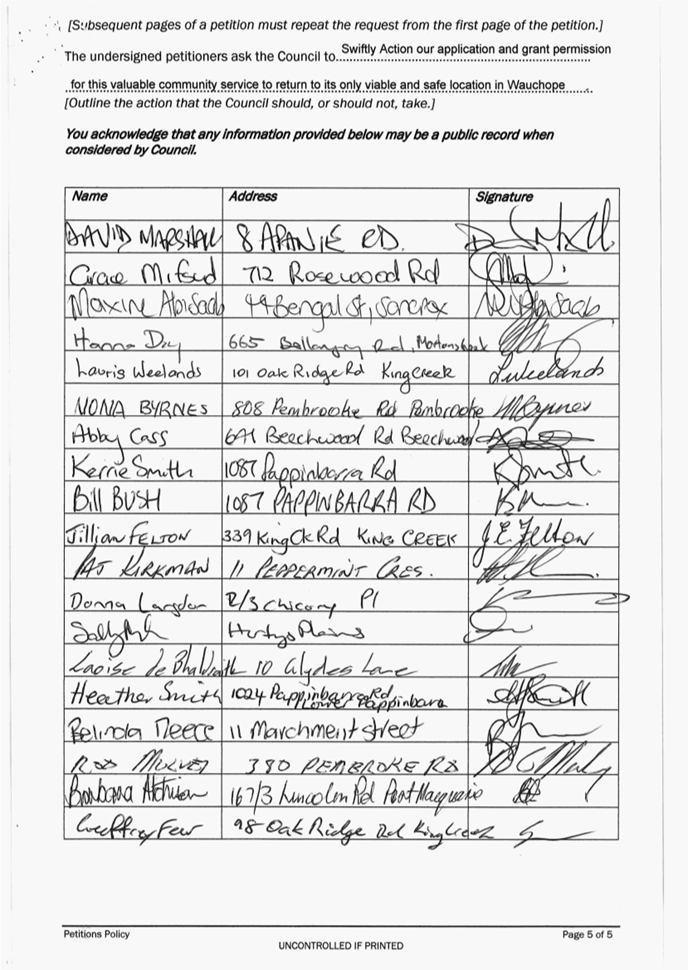 [Subsequent pages of a petition must repeat the request from the first page of the petition.]
The undersigned petitioners ask the Council to Swiftly Action our application and grant permission
for this valuable community service to return to its only viable and safe location in Wauchope
[Outline the action that the Council should, or should not, take.]
You acknowledge that any information provided below may be a public record when
considered by Council.
Name Address Signature
DAVID MARSHALL 8 APANIE RD.
Grace Mifsud 712 Rosewood Rd
Maxine AbiSaab 44 Bengal St, Sancrox
Hanna Day 665 Rd,
Lauris Weelands 101 Oak Ridge Rd King Creek LWeelands
NONA BYRNES 808 Pembrooke Rd Pembrooke
Abby Cass 641 Beechwood Rd Beechwood
Kerrie Smith 1087 Pappinbarra Rd
Bill BUSH 1087 PAPPINBARRA RD
Jillian FELTON 339 King Ck Rd KING CREEK J.E. Felton
PAT KIRKMAN 11 PEPPERMINT CRES.
Donna Langdon 2/3 Chicory Pl
Sally Huntys Plains
Laoise de Bhaldraith 10 Clydes Lane
Heather Smith 1024 Pappinbarra Rd
Lower Pappinbarra
Belinda Neece 11 Marchment street
ROS MULVEY 380 PEMBROKE RD
Barbara 167/3 Lincoln Rd Port Macquarie
Geoffrey Few 98 Oak Ridge Rd King Creek
Petitions Policy Page 5 of 5
UNCONTROLLED IF PRINTED